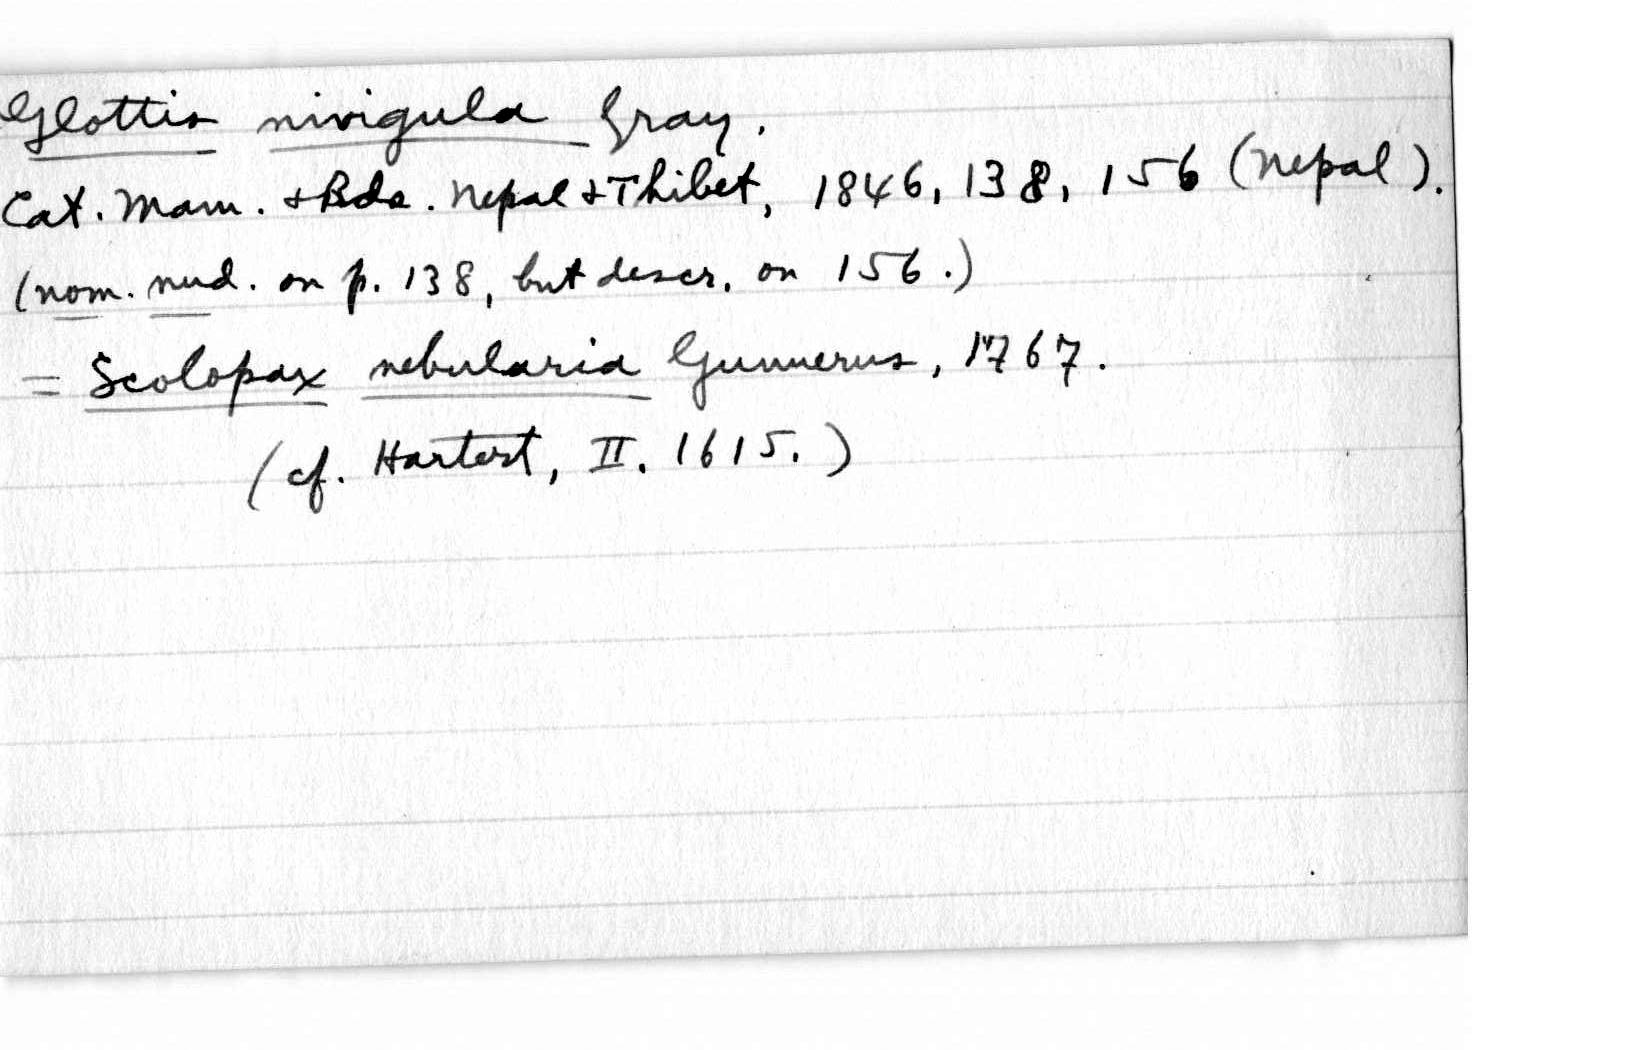 Glottis nivigula Gray.
Cat. Mam. + Bds. Nepal + Thibet, 1846, 138, 156 (Nepal).
(nom. nud. on p. 138, but descr. on 156.)
= Scolopax nebularia Gunnerus, 1767.
(cf. Hartert, II. 1615.)